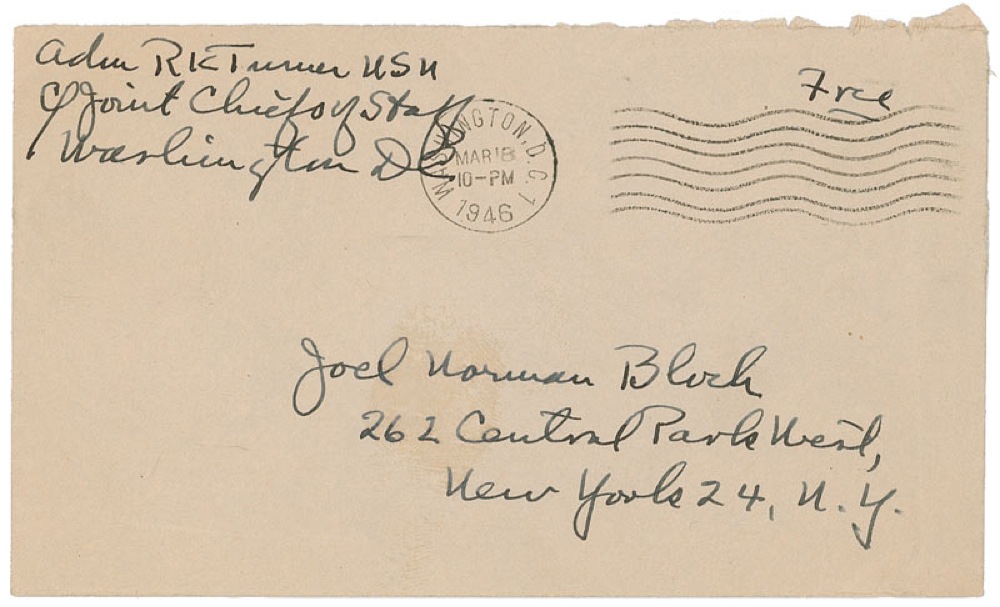 Adm RK Turner USN
℅ Joint Chiefs of Staff
Washington DC
Free
WASHINGTON, D.C. 1
MAR 18
10-PM
1946
Joel Norman Bloch
262 Central Park West,
New York 24, N.Y.